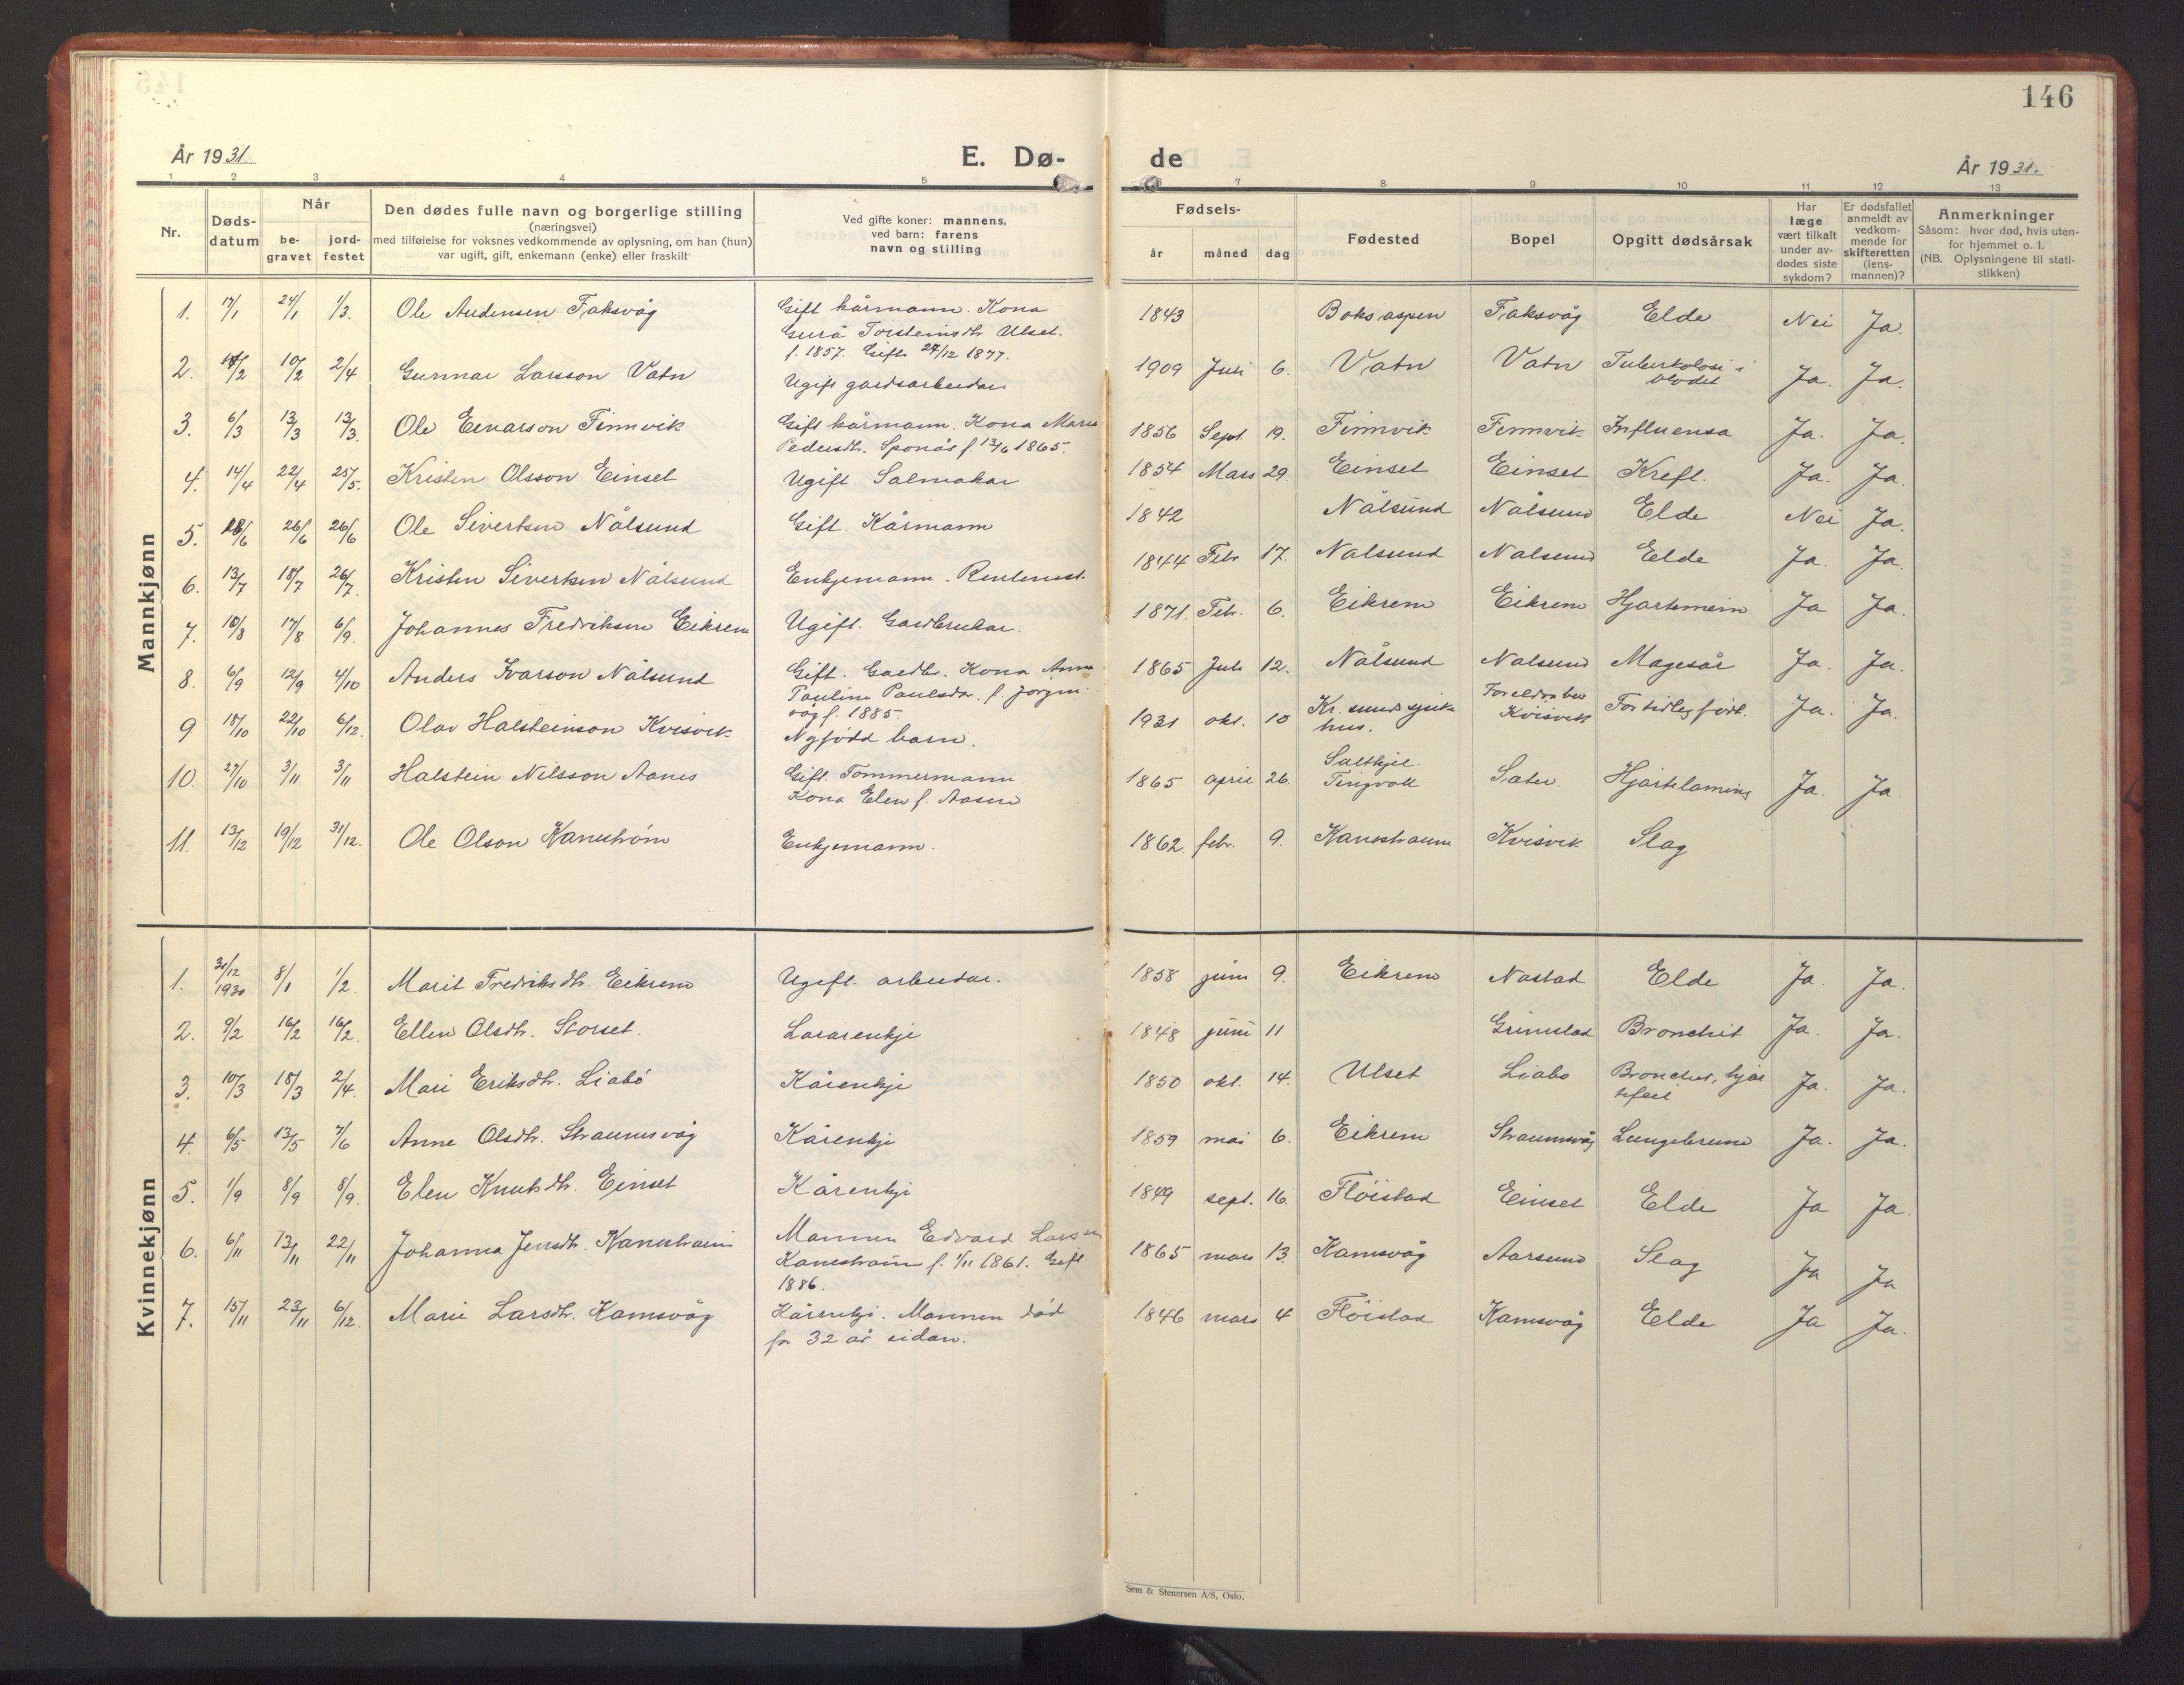 146
År 1931.
E. Dø-
de
År 1931.
1 2 3 4 5 6 7 8 9 10 11 12 13
Nr.
Døds-
datum
Når
be-
gravet
jord-
festet
Den dødes fulle navn og borgerlige stilling
(næringsvei)
med tilføielse for voksnes vedkommende av oplysning, om han (hun)
var ugift, gift, enkemann (enke) eller fraskilt
Ved gifte koner: mannens,
ved barn: farens
navn og stilling
Fødsels-
år måned dag
Fødested
Bopel
Opgitt dødsårsak
Har
læge
vært tilkalt
under av-
dødes siste
sykdom?
Er dødsfallet
anmeldt av
vedkom-
mende for
skifteretten
(lens-
mannen)?
Anmerkninger
Såsom: hvor død, hvis uten-
for hjemmet o. l.
(NB. Oplysningene til stati-
stikken)
Mannkjønn
1. 17/1 24/1 1/3. Ole Andensen Faksvåg Gift kårmann. Kona 1843 Boksaspen Faksvåg Elde Nei Ja.
Gurå Torsteinsdtr. Ulset.
f. 1857. Gift 27/12 1877.
2. 10/2 2/4 Gunnar Larsson Vatn Ugift gardsarbeidar 1909 Juli 6. Vatn Vatn Tuberkolose i Ja. Ja.
blodet
3. 6/3 13/3 13/3. Ole Einarson Finnvik Gift kårmann. Kona Maris 1856 Sept. 19. Finnvik Finnvik Influensa Ja. Ja.
Pedersdtr. Sponås f. 13/6 1865.
4. 14/4 22/4 25/5. Kristen Olsson Einset Ugift. Salmakar 1854 Mars 29. Einset Einset Kreft. Ja. Ja.
5. 18/6 26/6 26/6 Ole Sivertsen Nålsund Gift. Kårmann 1842 Nålsund Nålsund Elde Nei Ja.
6. 13/7 18/7 26/7. Kristen Sivertsen Nålsund Enkjemann. Rentenist. 1844 Febr 17. Nålsund Nålsund Elde Ja. Ja.
7. 10/8 17/8 6/9. Johannes Fredriksen Eikrem Ugift. Gardbrukar. 1871. Feb. 6. Eikrem Eikrem Hjartemein Ja Ja.
8. 6/9 12/9 4/10 Anders Ivarson Nålsund Gift. Gardbr. Kona Anna 1865 Juli 12. Nålsund Nålsund Magesår Ja. Ja.
Pauline Paulsdtr. f. Jørgen-
våg f. 1885.
9 18/10 22/10 6/12. Olav Halsteinson Kvisvik Nyfødd barn. 1931 okt. 10 Kr.sund sjuke
hus. Foreldra bur
Kvisvik For tidleg født. Ja. Ja.
10. 27/10 3/11 3/11 Halstein Nilsson Aanes Gift. Tømmermann 1865 april 26. Saltkjel. Sæter Hjartelaming Ja. Ja.
Kona Elen f. Aasen Tingvoll
11. 13/12 19/12 31/12. Ole Olson Kanestrøm Enkjemann. 1862. febr. 9. Kanestraum Kvisvik Slag
Kvinnekjønn
1. 30/12 1930 8/1 1/2 Marit Fredriksdtr. Eikrem Ugift. arbeidar. 1858 juni 9. Eikrem Nastad Elde Ja. Ja.
2. 9/2 16/2 16/2. Ellen Olsdtr. Storset. 1848 juni 11 Grimstad Bronchit Ja. Ja.
3. 10/3 18/3 2/4. Mari Eriksdtr. Liabö Kårenkje 1850 okt. 14. Ulset Liabö Bronchit, hjar Ja. Ja.
tefeil
4. 6/5 13/5 7/6 Anne Olsdtr. Straumsvåg Kårenkje 1859 mai 6. Eikrem Straumsvåg Lungebrune Ja. Ja.
5. 1/9 8/9 8/9. Elen Knutsdtr. Einset Kårenkje 1849 sept. 16. Flöistad Einset Elde Ja Ja.
6. 6/11 13/11 22/11 Johanna Jensdtr. Kanestraum Mannen Edvard Larssen 1865 mars 13. Kamsvåg Aarsund Slag Ja Ja
Kanestraum f. 1/11 1861. Gift
1886.
7. 15/11 23/11 6/12. Marie Larsdtr. Kamsvåg Kårenkje. Mannen død 1846 mars 4 Flöistad Kamsvåg Elde Ja Ja.
for 32 år sidan.
Sem & Stenersen A/S, Oslo.